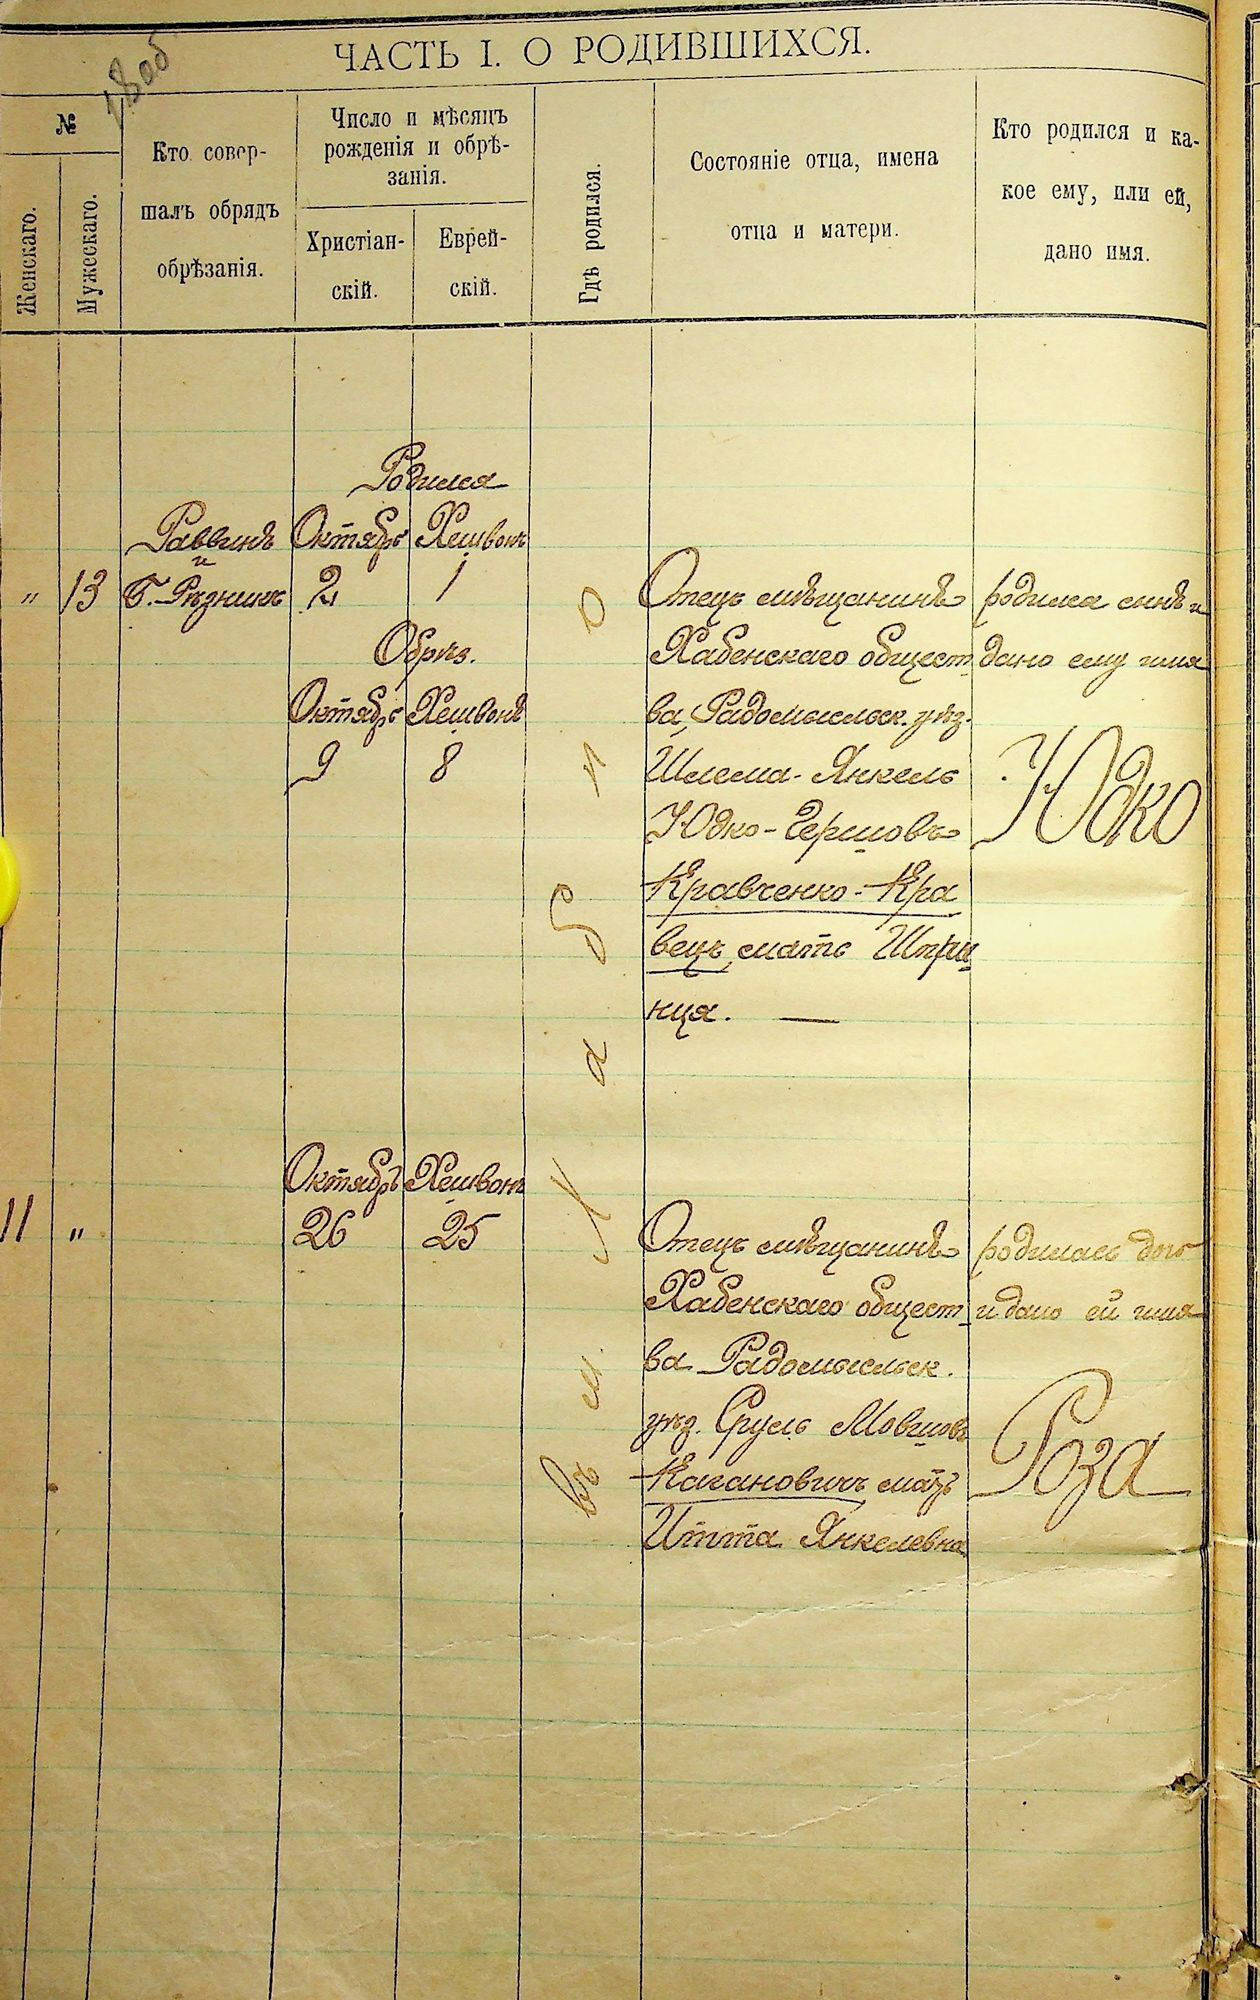 ЧАСТЬ I. О РОДИВШИХСЯ.
18 об
№
Женскаго.
Мужескаго.
Кто совер-
шалъ обрядъ
обрѣзанія.
Число и мѣсяцъ
рожденія и обрѣ-
занія.
Христіан-
скій.
Еврей-
скій.
Гдѣ родился.
Состояніе отца, имена
отца и матери.
Кто родился и ка-
кое ему, или ей,
дано имя.
Родился
Раввинъ
и
Б. Рѣзникъ
Октябрь
Хешвонъ
" 13
2
1
Обрѣз.
Октябрь
Хешвонъ
9
8
Въ м. Хабно
Отецъ мѣщанинъ
Хабенскаго общест-
ва, Радомысльск. уѣз.
Шлема-Янкель
Юдко-Гершовъ
Кравченко-Кра
вецъ, мать Шпри-
нця. —
родился сынъ и
дано ему имя
Юдко
11 "
Октябрь
Хешвонъ
26
25
Отецъ мѣщанинъ
Хабенскаго общест-
ва Радомысльск.
уѣз. Сруль Мовшовъ
Кагановичъ мать
Итта Янкелевна
родилась дочь
и дано ей имя
Роза